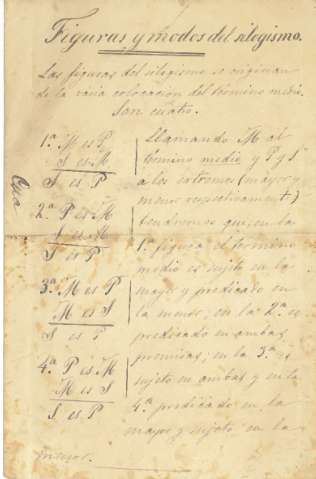 Figuras y modos del silogismo.
Las figuras del silogismo se originan
de la varia colocacion del termino medio.
Son cuatro.
1.ª M es P
S es M
S es P
2.ª P es M
S es M
S es P
3.ª M es P
M es S
S es P
4.ª P es M
M es S
S es P
Llamando M al
termino medio y P y S
a los estremos (mayor y
menor respectivament)
tendremos que, en la
1.ª figura el termino
medio es sujeto en la
mayor y predicado en
la menor; en la 2.ª es
predicado en ambas
premisas; en la 3.ª es
sujeto en ambas y en la
4.ª predicado en la
mayor y sujeto en la
menor.